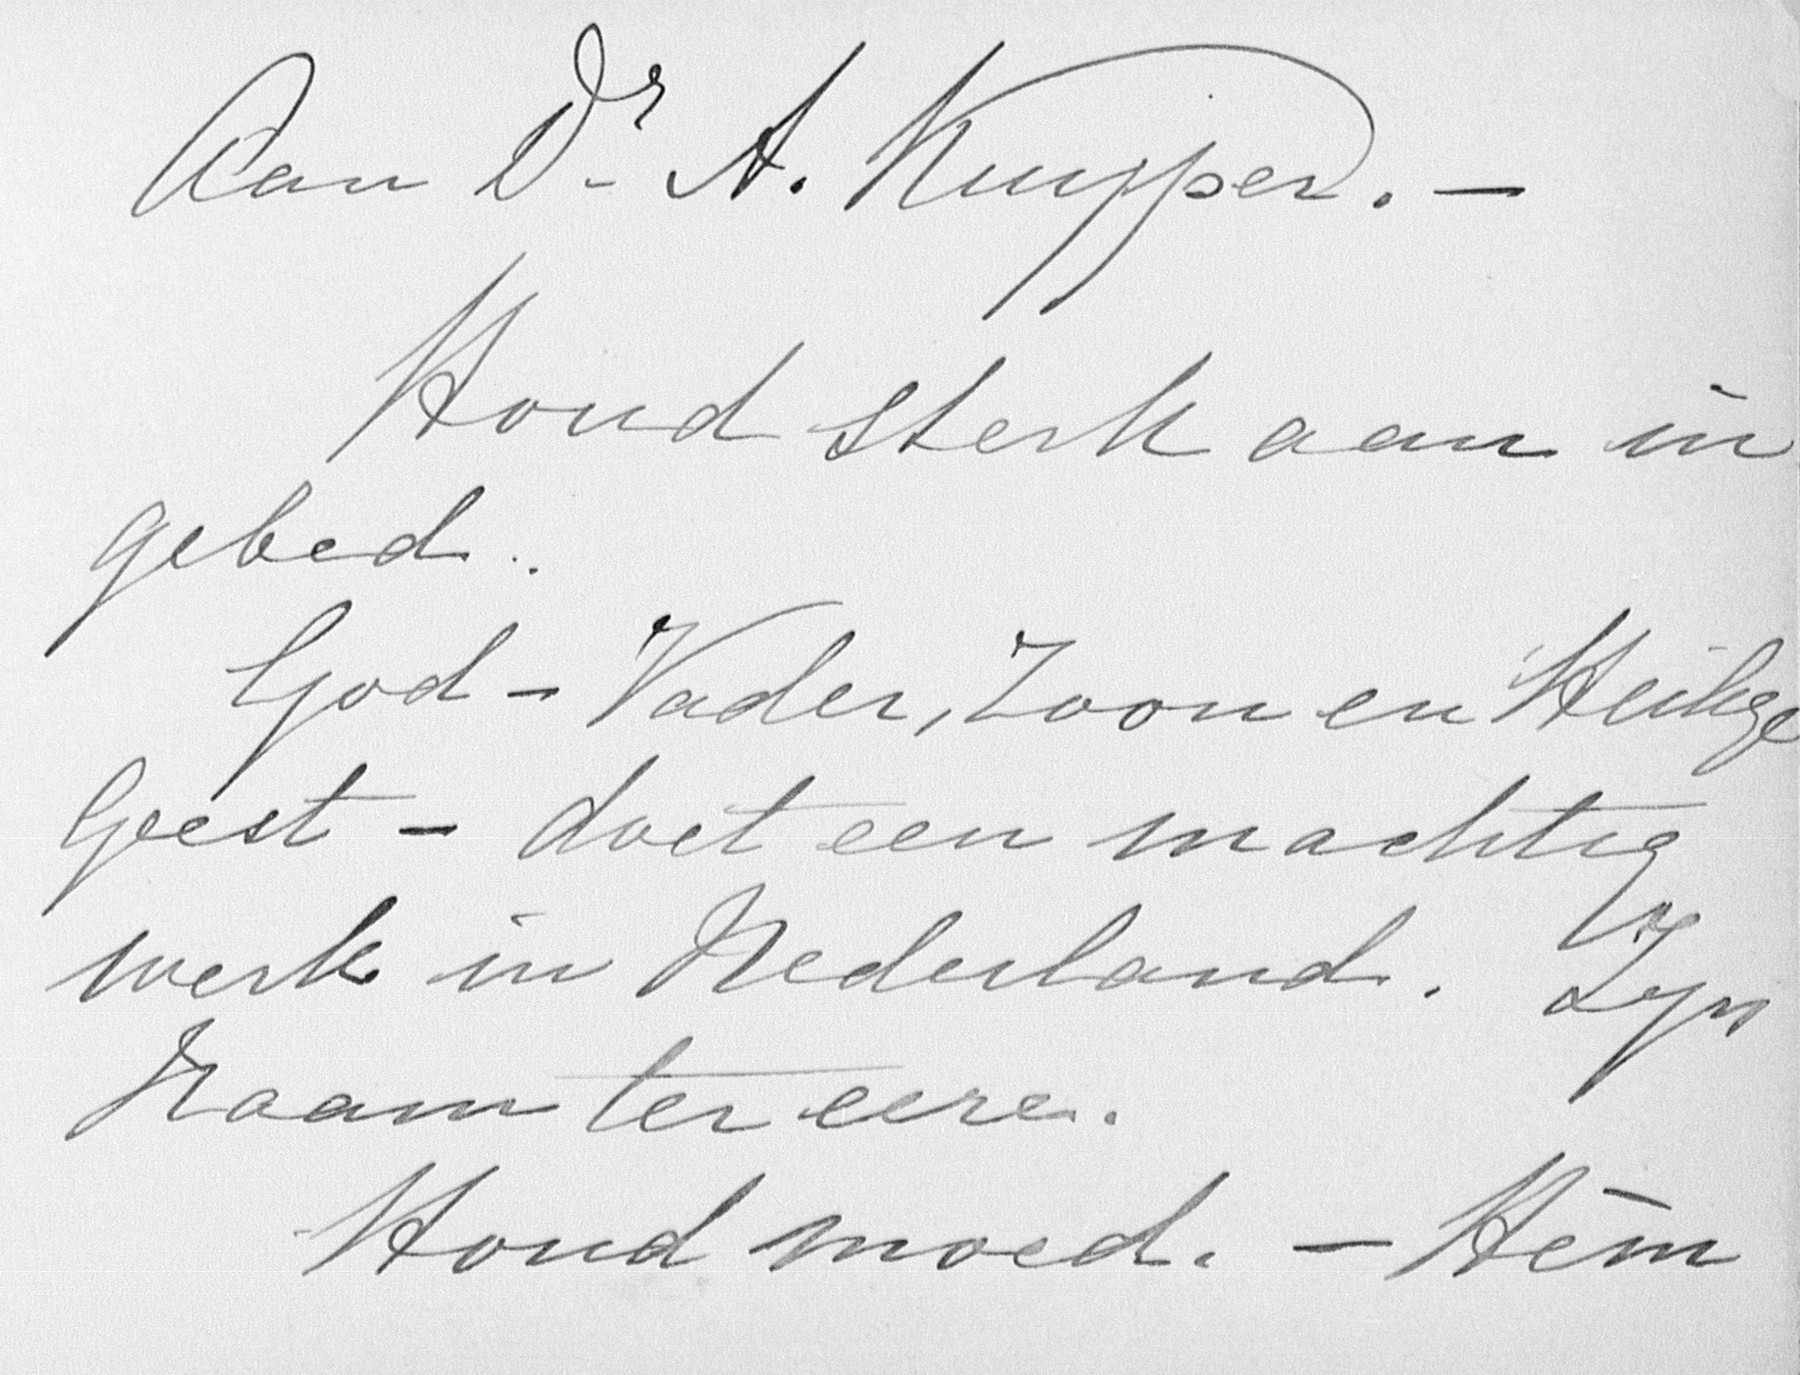 Aan Dr. A. Kuyper. —
Houd sterk aan in
gebed.
God – Vader, Zoon en Heilige
Geest – doet een machtig
werk in Nederland. Zyn
Naam ter eere.
Houd moed. — Hem